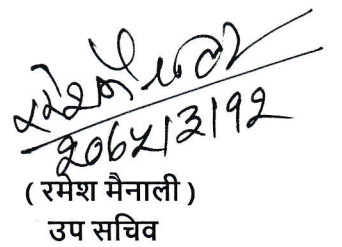 २०६५।३।१२
( रमेश मैनाली )
उप सचिव